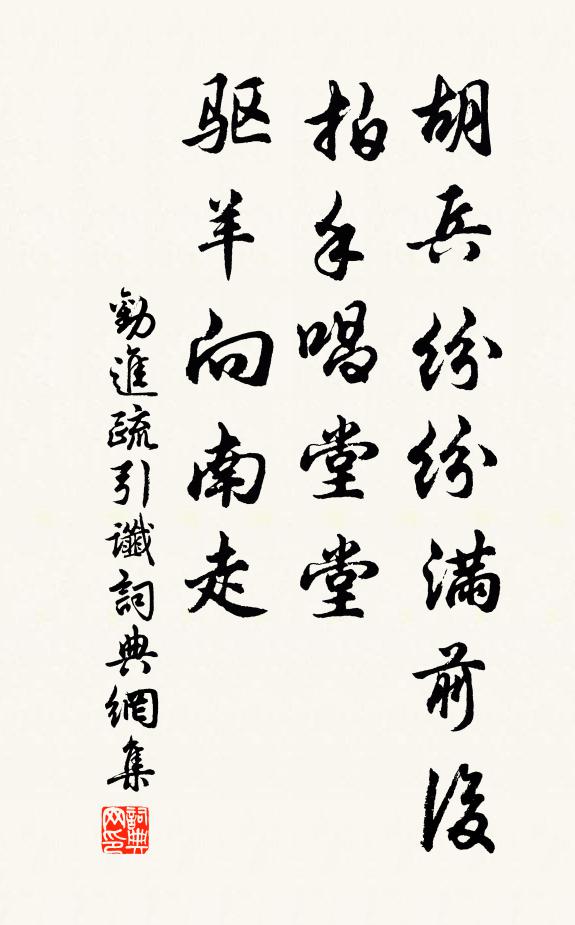 胡兵纷纷满前後
拍手唱堂堂
驱羊向南走
勸進疏引讖詞典網集
詞典网印